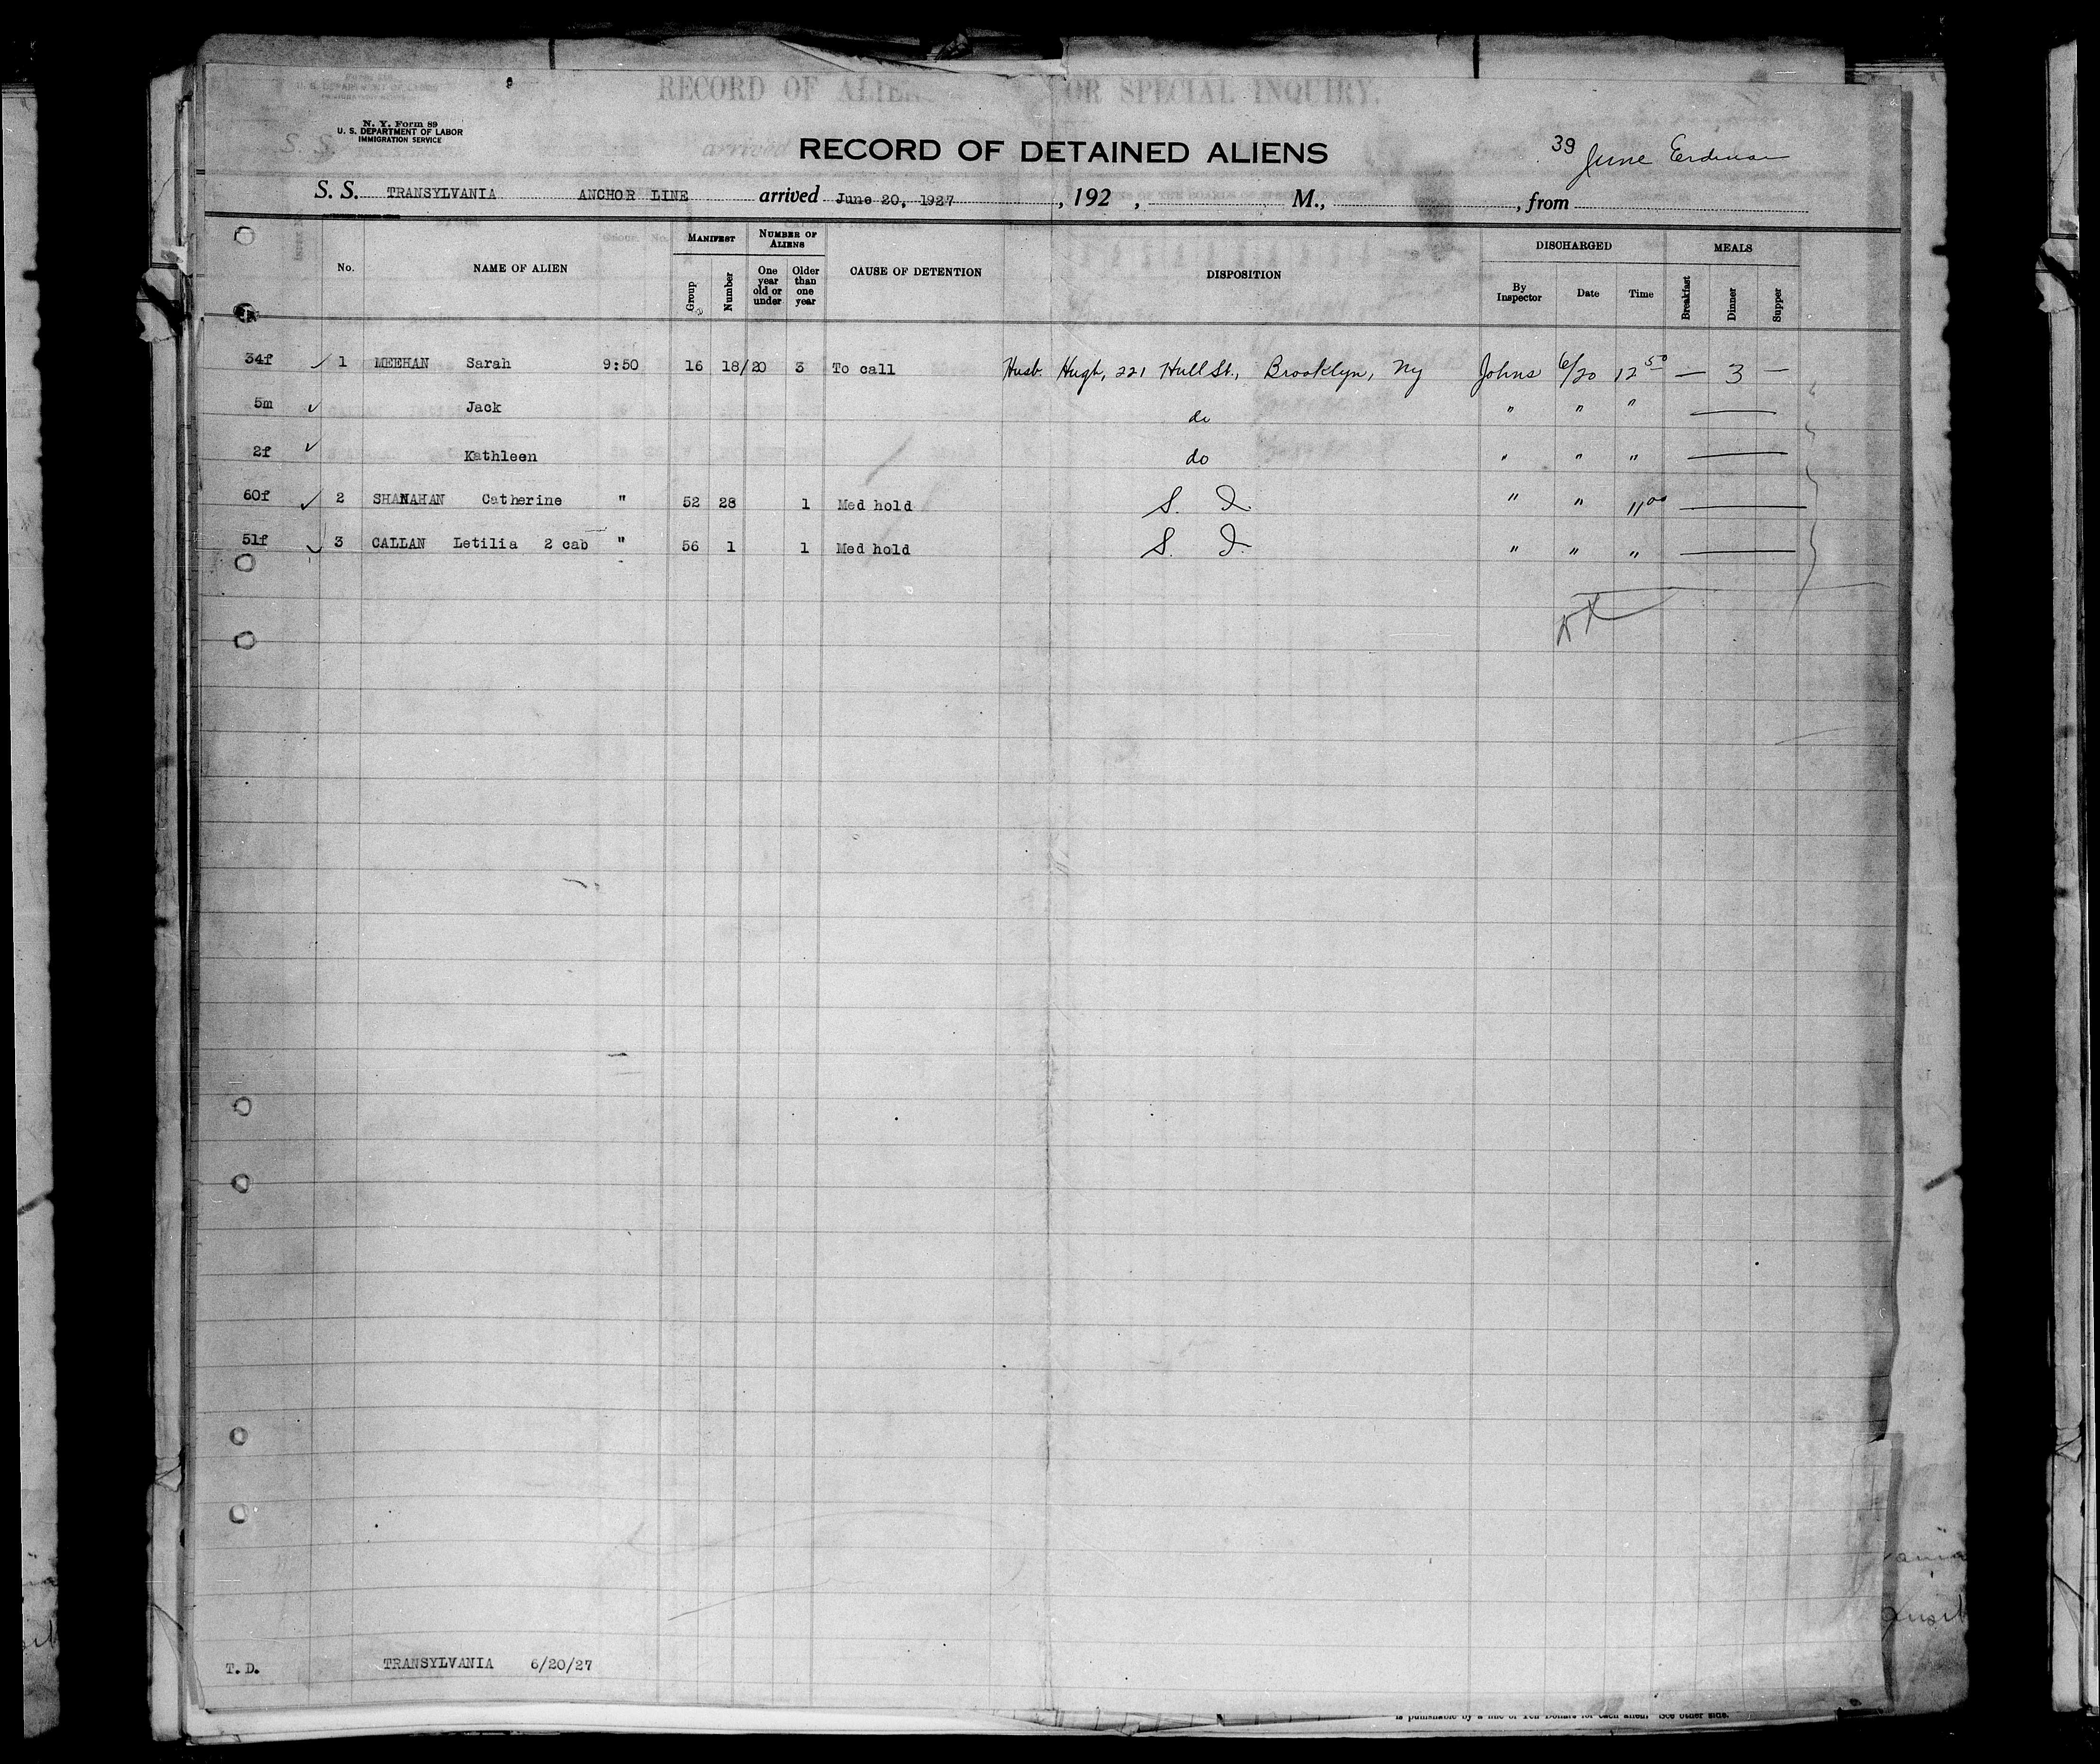 RECORD OF ALIE OR SPECIAL INQUIRY.
N. Y. Form 89
U. S. DEPARTMENT OF LABOR
IMMIGRATION SERVICE
RECORD OF DETAINED ALIENS
39 June
S. S. TRANSYLVANIA ANCHOR LINE arrived June 20, 1927, 192 , M., , from
No. NAME OF ALIEN MANIFEST Group Number NUMBER OF ALIENS One year old or under Older than one year CAUSE OF DETENTION DISPOSITION DISCHARGED By Inspector Date Time MEALS Breakfast Dinner Supper
34f ✓ 1 MEEHAN Sarah 9:50 16 18/20 3 To call Husb. Hugh, 221 Hull St., Brooklyn, Ny Johns 6/20 12 50 — 3 —
5m ✓ Jack do " " " —
2f ✓ Kathleen do " " " —
60f ✓ 2 SHANAHAN Catherine " 52 28 1 Med hold S. I. " " 11 00 —
51f ✓ 3 CALLAN Letilia 2 cab " 56 1 1 Med hold S. I. " " " —
T. D. TRANSYLVANIA 6/20/27
is punishable by a fine of Ten Dollars for each alien. See other side.